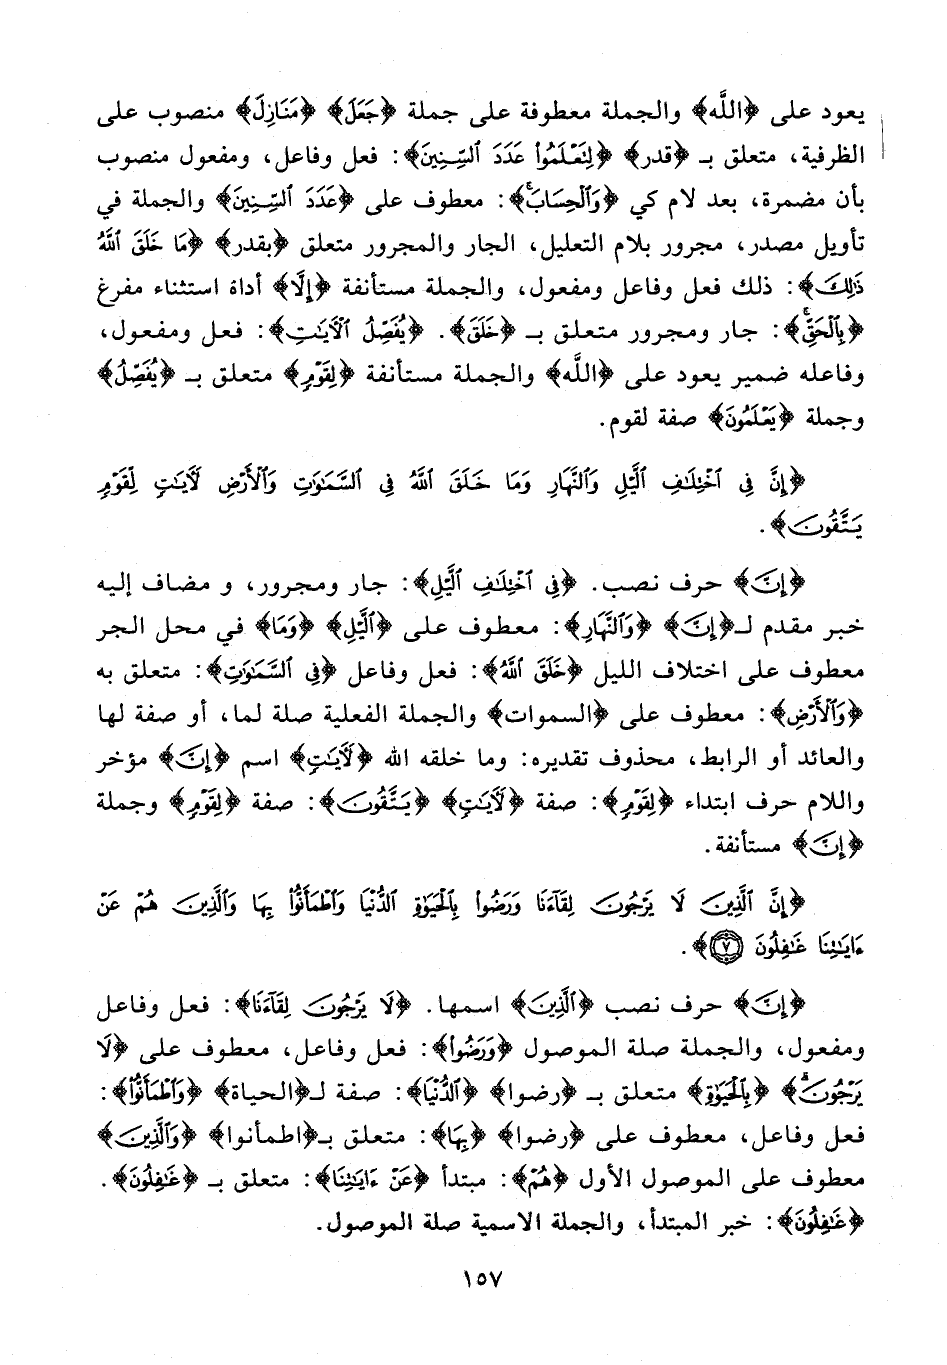 يعود على ﴿اللَّه﴾ والجملة معطوفة على جملة ﴿جَعَلَ﴾ ﴿مَنَازِلَ﴾ منصوب على
الظرفية، متعلق بـ ﴿قدر﴾ ﴿لِتَعْلَمُوا۟ عَدَدَ ٱلسِّنِينَ﴾: فعل وفاعل، ومفعول منصوب
بأن مضمرة، بعد لام كي ﴿وَٱلْحِسَابَۚ﴾: معطوف على ﴿عَدَدَ ٱلسِّنِينَ﴾ والجملة في
تأويل مصدر، مجرور بلام التعليل، الجار والمجرور متعلق ﴿بقدر﴾ ﴿مَا خَلَقَ ٱللَّهُ
ذَٰلِكَ﴾: ذلك فعل وفاعل ومفعول، والجملة مستأنفة ﴿إِلَّا﴾ أداة استثناء مفرغ
﴿بِٱلْحَقِّۚ﴾: جار ومجرور متعلق بـ ﴿خَلَقَ﴾. ﴿يُفَصِّلُ ٱلْءَايَٰتِ﴾: فعل ومفعول،
وفاعله ضمير يعود على ﴿اللَّه﴾ والجملة مستأنفة ﴿لِقَوْمٍ﴾ متعلق بـ ﴿يُفَصِّلُ﴾
وجملة ﴿يَعْلَمُونَ﴾ صفة لقوم.
﴿إِنَّ فِى ٱخْتِلَٰفِ ٱلَّيْلِ وَٱلنَّهَارِ وَمَا خَلَقَ ٱللَّهُ فِى ٱلسَّمَٰوَٰتِ وَٱلْأَرْضِ لَءَايَٰتٍ لِّقَوْمٍ
يَتَّقُونَ﴾.
﴿إِنَّ﴾ حرف نصب. ﴿فِى ٱخْتِلَٰفِ ٱلَّيْلِ﴾: جار ومجرور، و مضاف إليه
خبر مقدم لـ﴿إِنَّ﴾ ﴿وَٱلنَّهَارِ﴾: معطوف على ﴿ٱلَّيْلِ﴾ ﴿وَمَا﴾ في محل الجر
معطوف على اختلاف الليل ﴿خَلَقَ ٱللَّهُ﴾: فعل وفاعل ﴿فِى ٱلسَّمَٰوَٰتِ﴾: متعلق به
﴿وَٱلْأَرْضِ﴾: معطوف على ﴿السموات﴾ والجملة الفعلية صلة لما، أو صفة لها
والعائد أو الرابط، محذوف تقديره: وما خلقه الله ﴿لَءَايَٰتٍ﴾ اسم ﴿إِنَّ﴾ مؤخر
واللام حرف ابتداء ﴿لِقَوْمٍ﴾: صفة ﴿لَءَايَٰتٍ﴾ ﴿يَتَّقُونَ﴾: صفة ﴿لِقَوْمٍ﴾ وجملة
﴿إِنَّ﴾ مستأنفة.
﴿إِنَّ ٱلَّذِينَ لَا يَرْجُونَ لِقَآءَنَا وَرَضُوا۟ بِٱلْحَيَوٰةِ ٱلدُّنْيَا وَٱطْمَأَنُّوا۟ بِهَا وَٱلَّذِينَ هُمْ عَنْ
ءَايَٰتِنَا غَٰفِلُونَ ٧﴾.
﴿إِنَّ﴾ حرف نصب ﴿ٱلَّذِينَ﴾ اسمها. ﴿لَا يَرْجُونَ لِقَآءَنَا﴾: فعل وفاعل
ومفعول، والجملة صلة الموصول ﴿وَرَضُوا۟﴾: فعل وفاعل، معطوف على ﴿لَا
يَرْجُونَ﴾ ﴿بِٱلْحَيَوٰةِ﴾ متعلق بـ ﴿رضوا﴾ ﴿ٱلدُّنْيَا﴾: صفة لـ﴿الحياة﴾ ﴿وَٱطْمَأَنُّوا۟﴾:
فعل وفاعل، معطوف على ﴿رضوا﴾ ﴿بِهَا﴾: متعلق بـ﴿اطمأنوا﴾ ﴿وَٱلَّذِينَ﴾
معطوف على الموصول الأول ﴿هُمْ﴾: مبتدأ ﴿عَنْ ءَايَٰتِنَا﴾: متعلق بـ ﴿غَٰفِلُونَ﴾.
﴿غَٰفِلُونَ﴾: خبر المبتدأ، والجملة الاسمية صلة الموصول.
١٥٧